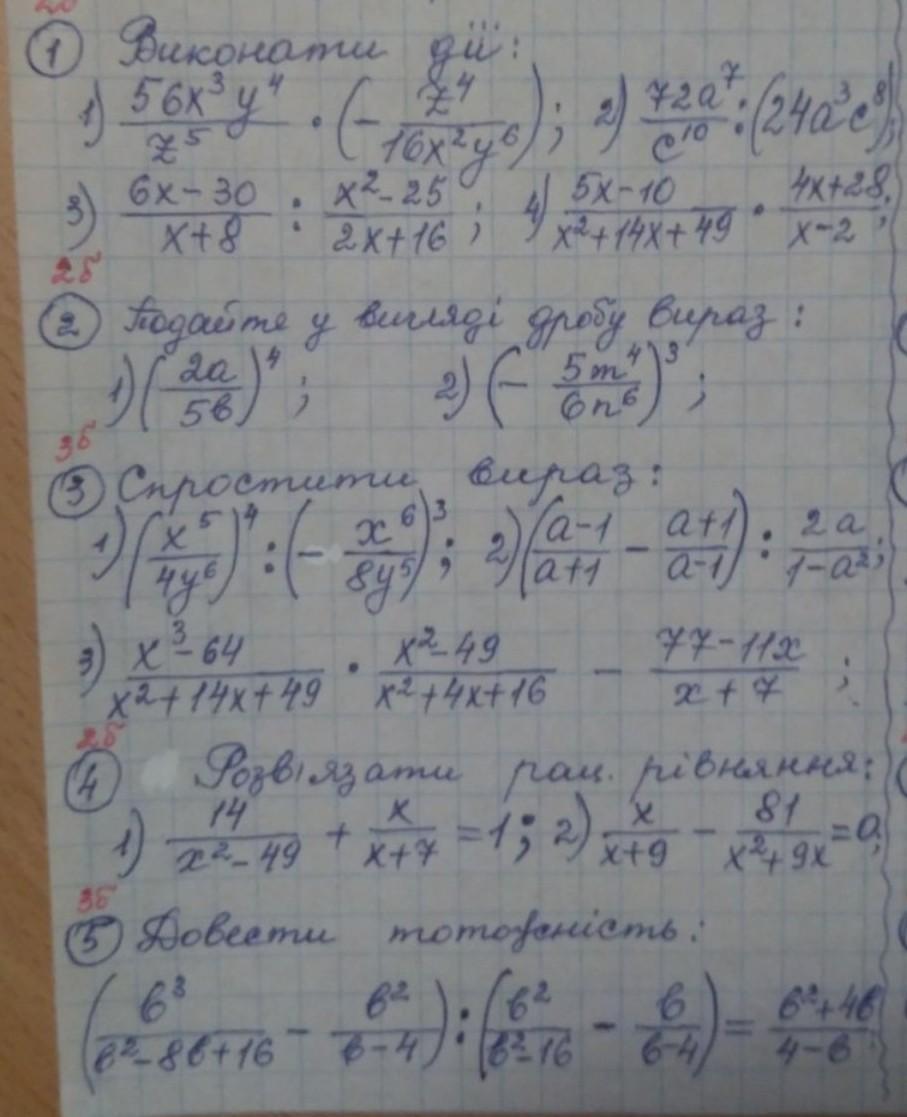 2б
① Виконати дії:
1) \frac{56x^3y^4}{z^5} \cdot (-\frac{z^4}{16x^2y^6}); 2) \frac{72a^7}{c^{10}} : (24a^3c^8);
3) \frac{6x-30}{x+8} : \frac{x^2-25}{2x+16}; 4) \frac{5x-10}{x^2+14x+49} \cdot \frac{4x+28}{x-2};
2б
② Подайте у вигляді дробу вираз:
1) (\frac{2a}{5b})^4; 2) (-\frac{5m^4}{6n^6})^3;
3б
③ Спростити вираз:
1) (\frac{x^5}{4y^6})^4 : (-\frac{x^6}{8y^5})^3; 2) (\frac{a-1}{a+1} - \frac{a+1}{a-1}) : \frac{2a}{1-a^2};
3) \frac{x^3-64}{x^2+14x+49} \cdot \frac{x^2-49}{x^2+4x+16} - \frac{77-11x}{x+7};
2б
④ Розв'язати рац. рівняння:
1) \frac{14}{x^2-49} + \frac{x}{x+7} = 1; 2) \frac{x}{x+9} - \frac{81}{x^2+9x} = 0;
3б
⑤ Довести тотожність:
(\frac{b^3}{b^2-8b+16} - \frac{b^2}{b-4}) : (\frac{b^2}{b^2-16} - \frac{b}{b-4}) = \frac{b^2+4b}{4-b}.